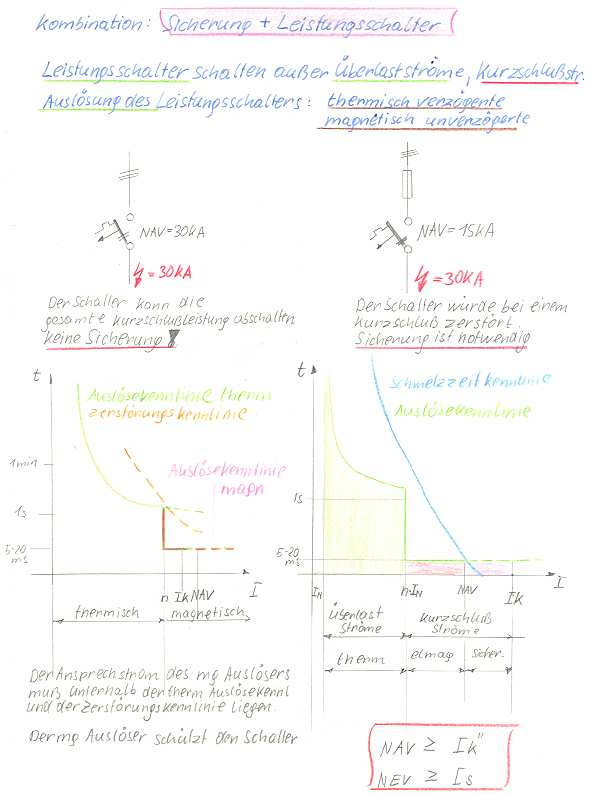 Kombination: Sicherung + Leistungsschalter
Leistungsschalter schalten außer Überlastströme, Kurzschlußstr.
Auslösung des Leistungsschalters: thermisch verzögerte
magnetisch unverzögerte
NAV=30kA
= 30KA
Der Schalter kann die
gesamte Kurzschlußleistung abschalten
keine Sicherung
NAV=15kA
= 30KA
Der Schalter würde bei einem
Kurzschluß zerstört.
Sicherung ist notwendig
t
Auslösekennlinie therm
Zerstörungskennlinie
Auslösekennlinie
magn
1min
1s
5-20
ms
n IK NAV I
thermisch magnetisch
t
Schmelzzeitkennlinie
Auslösekennlinie
1s
5-20
ms
IN n·IN NAV IK I
Überlast
ströme
Kurzschluß
Ströme
therm elmag Sicher.
Der Ansprechstrom des mg Auslösers
muß unterhalb der therm Auslösekennl
und der Zerstörungskennlinie liegen.
Der mg Auslöser schützt den Schalter
NAV ≥ IK"
NEV ≥ Is